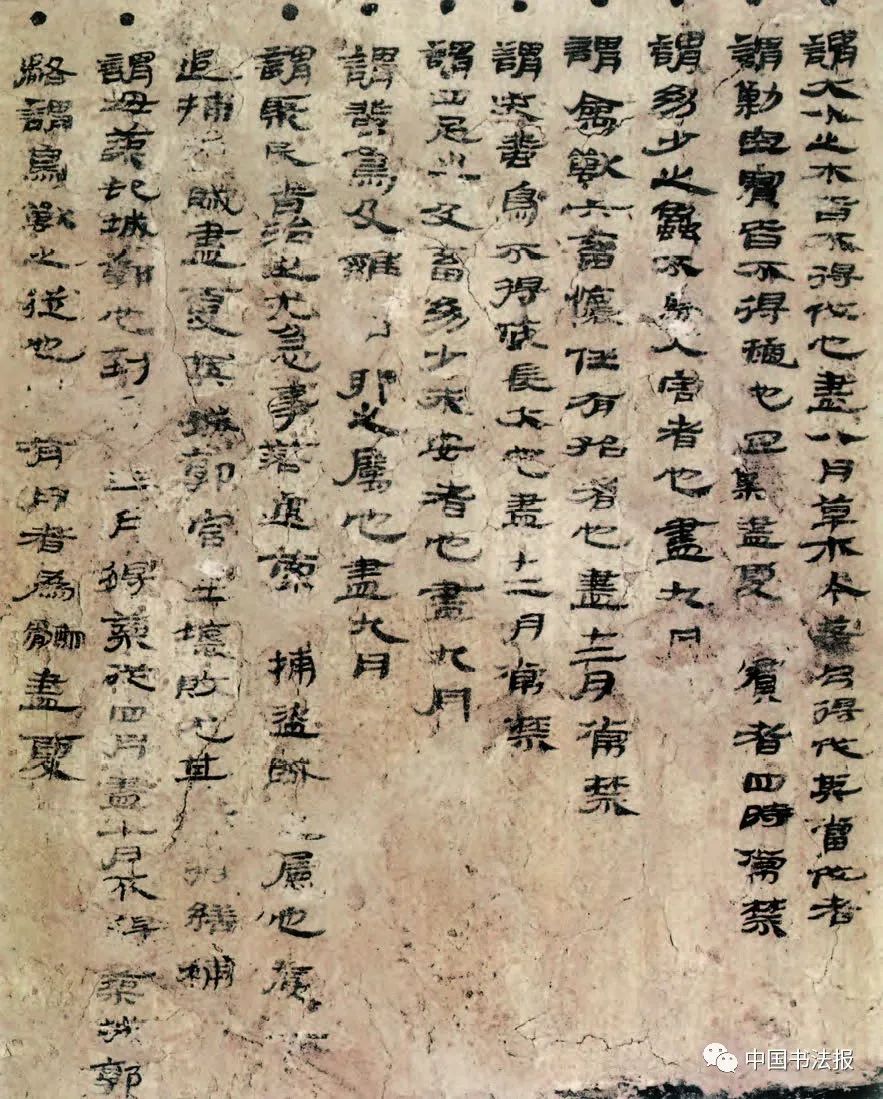 謂大小之木皆不得伐也盡八月草木零落乃得伐其當伐者
謂剿空實皆不得擿也空剿盡夏實者四時常禁
謂幼少之蟲不為人害者也盡九月
謂禽獸六畜懷任有孡者也盡十二月常禁
謂夭蜚鳥不得使長大也盡十二月常禁
謂四足及畜幼少未安者也盡九月
謂蜚鳥及雞卵之屬也盡九月
謂聚民繕治也尤急事若追索捕盜賊之屬也
追捕盜賊盡夏其城郭宮室壞敗尤甚繕補
謂毋築起城郭也三月得築從四月盡七月不得築城郭
骼謂鳥獸之也有肉者為骴盡夏
中国书法报